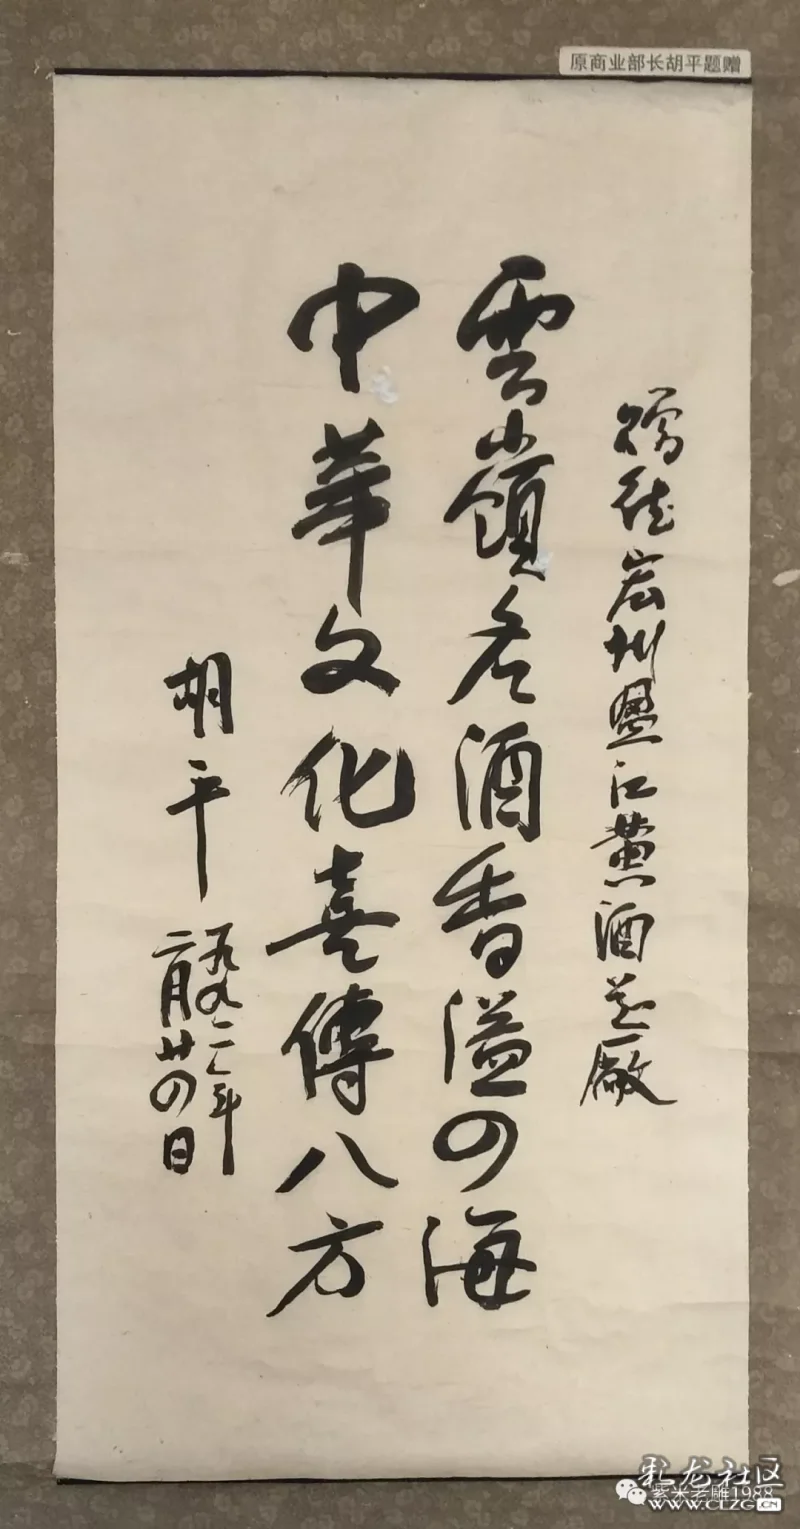 原商业部长胡平题赠
赠德宏州盈江黄酒总廠
雲嶺名酒香溢四海
中華文化喜傳八方
胡平
一九九二年
二月廿四日
彩龙社区
紫米老雕1988
WWW.CLZG.CN